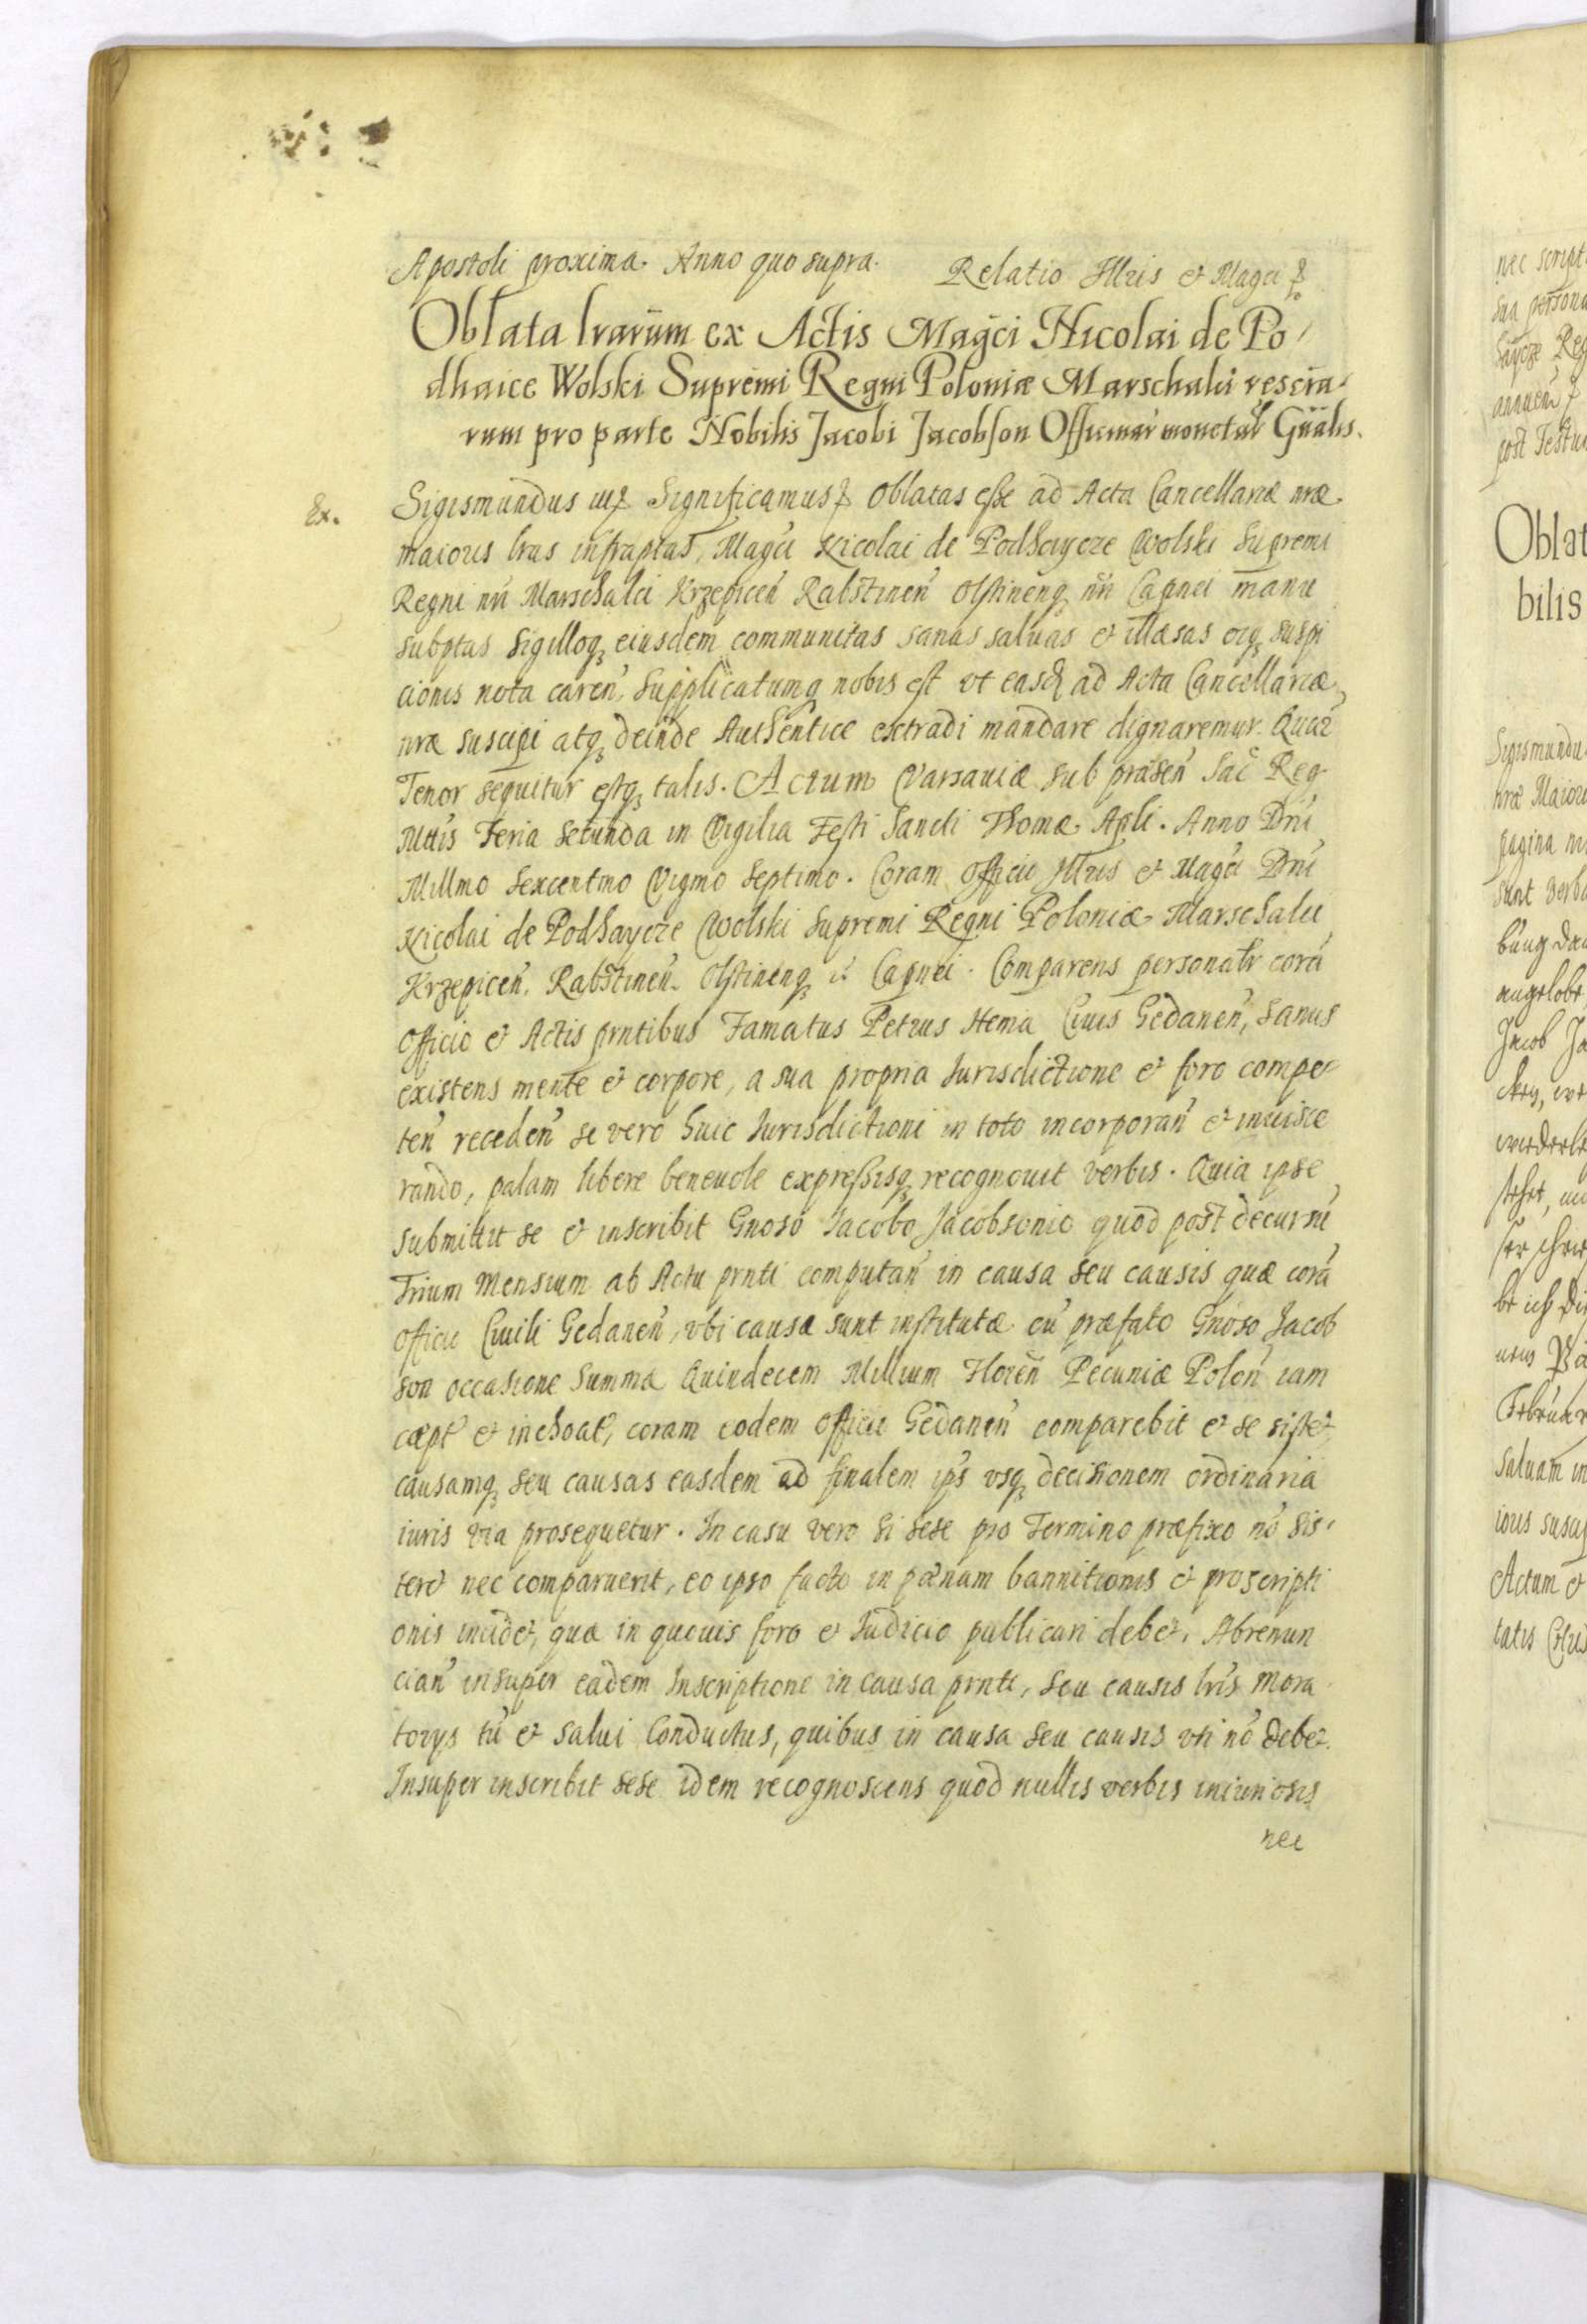 Apostoli proxima. Anno quo supra. Relatio Illris et Magci
Oblata lrarum ex Actis Magci Nicolai de Po
dhaice Wolski Supremi Regni Poloniæ Marschalci
rum pro parte Nobilis Jacobi Jacobson monetar Gnalis.
Ex. Sigismundus Significamus Oblatas esse ad Acta Cancellariæ nræ
maioris lras infraptas, Magci Nicolai de Podhaycze Wolski Supremi
Regni nri Marschalci Krzepicen Rabstinen Olstinenq nri Capnei manu
subptas sigilloq eiusdem communitas sanas saluas et illæsas oiq suspi
cionis nota caren, Supplicatumq nobis est vt easd ad Acta Cancellariæ
nræ suscipi atq deinde Authentice extradi mandare dignaremur. Quar
Tenor sequitur estq talis. Actum Varsauiæ sub præsen Sac Reg
Mttis Feria Secunda in Vigilia Festi Sancti Thomæ Apli. Anno Dni
Millmo Sexcentmo Vigmo Septimo. Coram Officio Illris et Magci Dni
Nicolai de Podhaycze Wolski Supremi Regni Poloniæ Marschalci
Krzepicen. Rabstinen. Olstinenq Capnei. Comparens personalr cora
Officio et Actis prntibus Famatus Petrus Hema Ciuis Gedanen, Sanus
existens mente et corpore, a sua propria Jurisdictione et foro compe
ten receden se vero huic Jurisdictioni in toto incorporan et inuisce
rando, palam libere beneuole expressisq recognouit verbis. Quia ipse
submittit se et inscribit Gnoso Jacobo Jacobsonio quod post decursu
Trium Mensium ab Actu prnti computan in causa seu causis quæ cora
officio Ciuili Gedanen, vbi causæ sunt institutæ cu præfato Gnoso Jacob
son occasione Summæ Quindecem Millium Floren Pecuniæ Polon iam
cæpt et inchoat, coram eodem Officio Gedanen comparebit et se sistet,
causamq seu causas easdem ad finalem ips vsq decisionem ordinaria
iuris via prosequetur. In casu vero si sese pro Termino præfixo no sis
teret nec comparuerit, eo ipso facto in pœnam bannitionis et proscripti
onis incidet, quæ in quouis foro et Judicio publicari debet. Abrenun
cian insuper eadem Inscriptione in causa prnti, seu causis lris mora
torys tu et salui Conductus, quibus in causa seu causis vti no debet.
Insuper inscribit sese idem recognoscens quod nullis verbis iniuriosis
nec
nec script
sua persona
post Festu
Oblat
bilis
Sigismundu
nræ Maiori
pagina
sunt
Jacob Ja
saluam in
Actum et